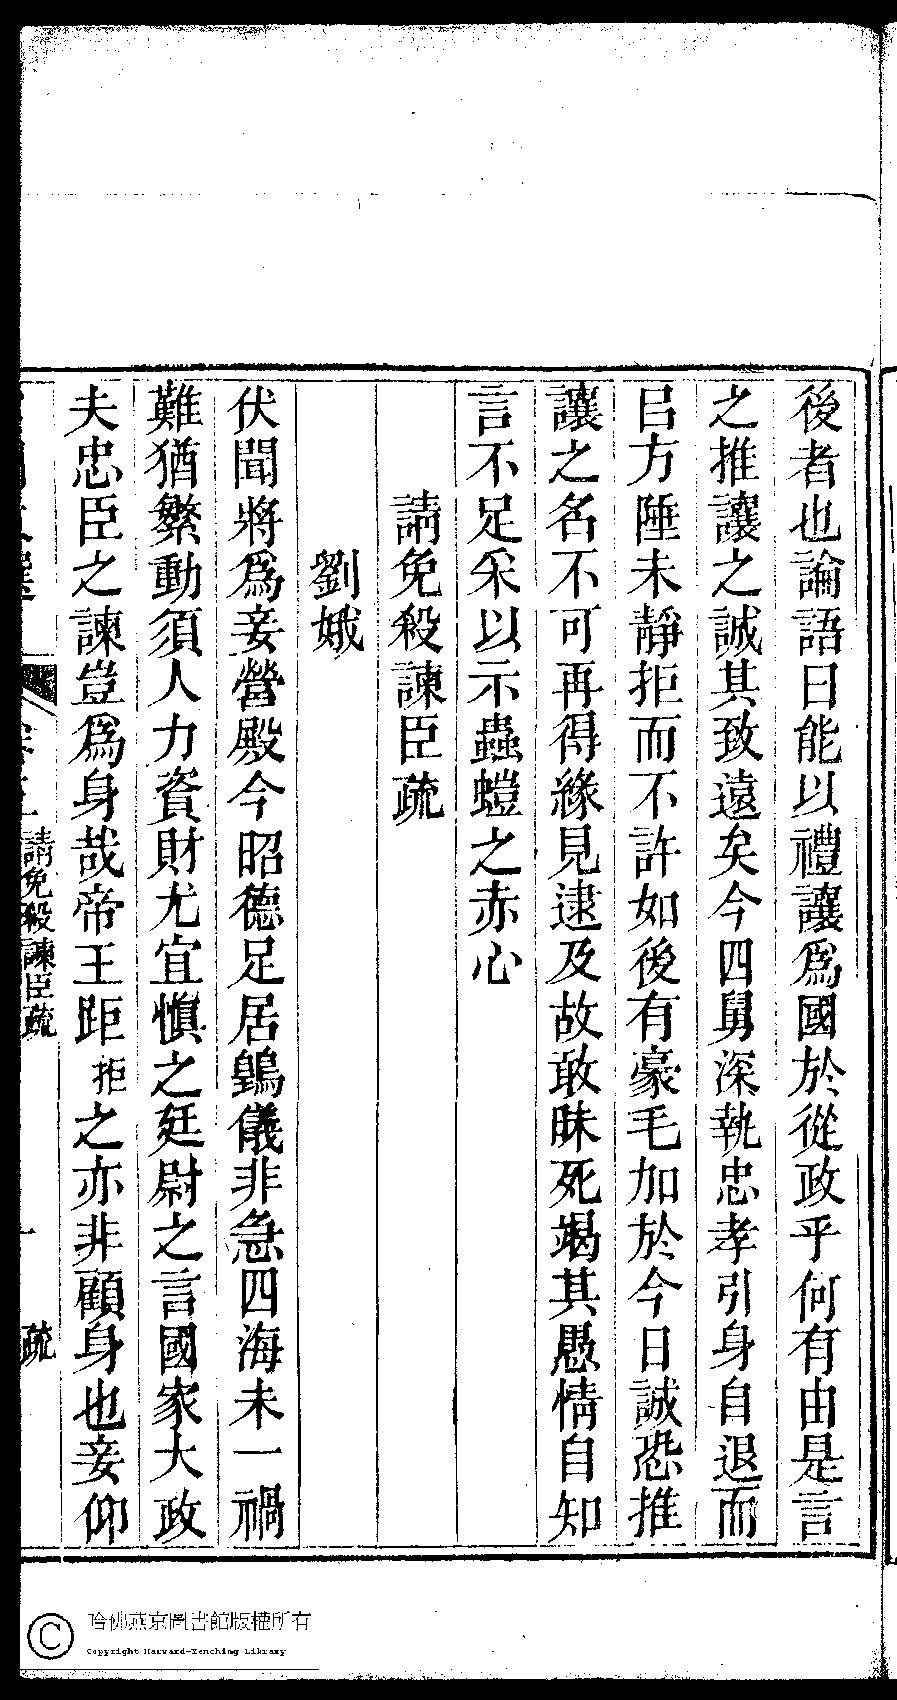 後者也論語曰能以禮讓爲國於從政乎何有由是言
之推讓之誠其致遠矣今四舅深執忠孝引身自退而
㠯方陲未靜拒而不許如後有豪毛加於今日誠恐推
讓之名不可再得緣見逮及故敢昧死竭其愚情自知
言不足采以示蟲螘之赤心
請免殺諫臣疏
劉娥
伏聞將爲妾營殿今昭德足居䳨儀非急四海未一禍
難猶繁動須人力資財尤宜愼之廷尉之言國家大政
夫忠臣之諫豈爲身哉帝王距拒之亦非顧身也妾仰
請免殺諫臣疏
疏
哈佛燕京圖書館版權所有
Copyright Harvard-Yenching Library